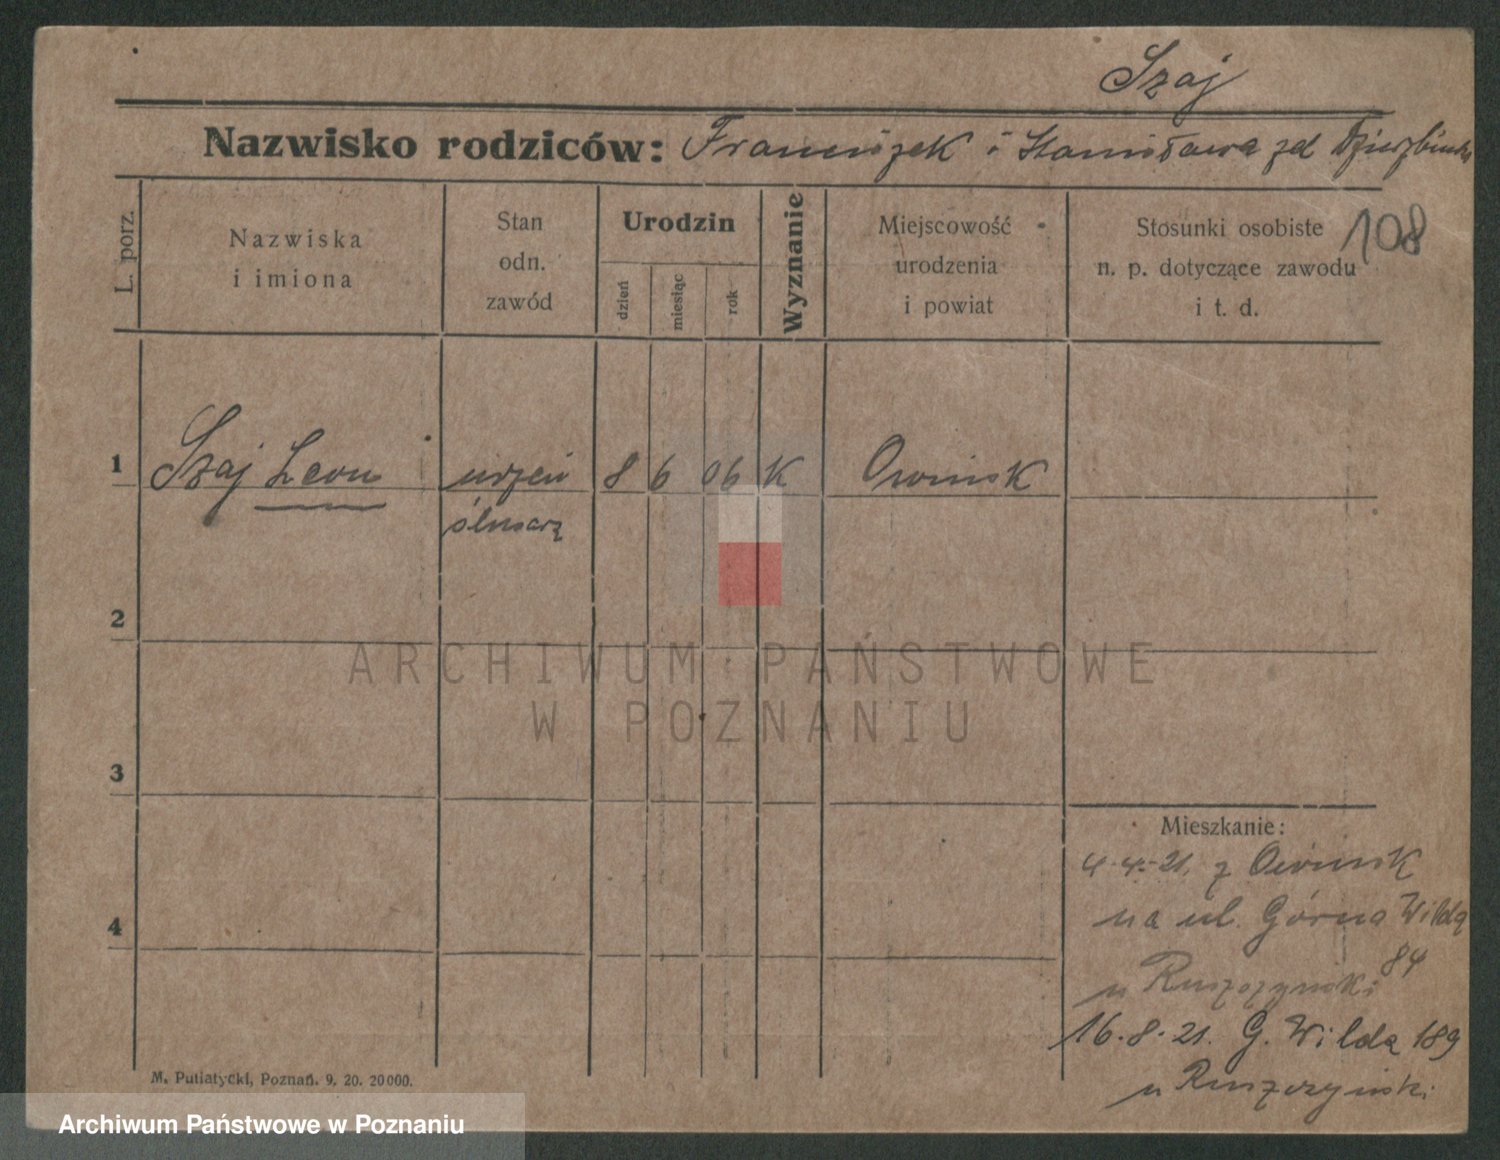 Szaj
Nazwisko rodziców: Franciszek i Stanisława zd
108
L. porz.
Nazwiska
i imiona
Stan
odn.
zawód
Urodzin
dzień
miesiąc
rok
Wyznanie
Miejscowość
urodzenia
i powiat
Stosunki osobiste
n. p. dotyczące zawodu
i t. d.
1 Szaj Leon uczeń 8 6 06 K Owinsk
ślusarz
2
ARCHIWUM PAŃSTWOWE
W POZNANIU
3
Mieszkanie:
4-4-21. z Owinsk
na ul. Górna Wilda
84
u Ruszczynski
4
16.8.21. G. Wilda 189
u Ruszczynski
M. Putiatycki, Poznań. 9. 20. 20000.
Archiwum Państwowe w Poznaniu